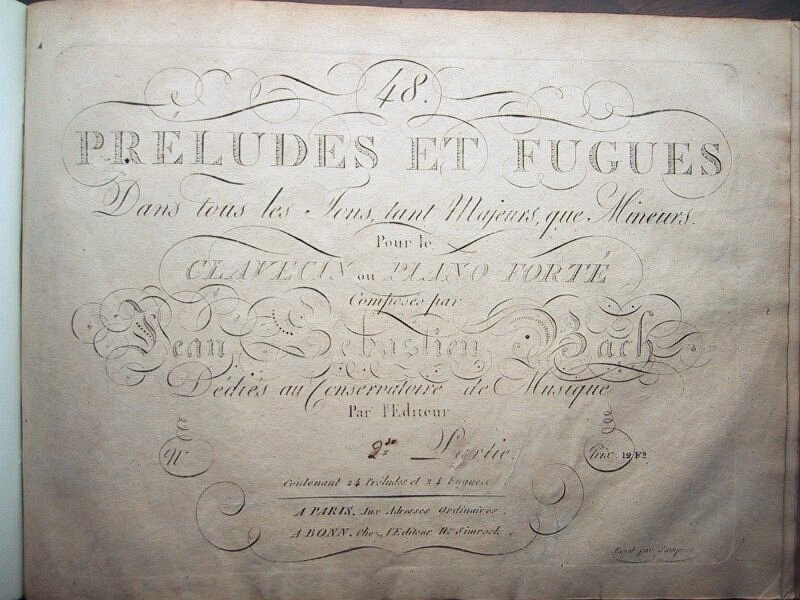 48.
PRÉLUDES ET FUGUES
Dans tous les Tons, tant Majeurs, que Mineurs.
Pour le
CLAVECIN ou PIANO FORTÉ
Composés par
Jean Sebastien Bach
Dédiés au Conservatoire de Musique
Par l'Editeur
N.
2.de Partie.
Prix. 12 Fs
Contenant 24 Préludes et 24 Fugues.
A PARIS, Aux Adresses Ordinaires.
A BONN, Chez l'Editeur N. Simrock.
Ecrit par Sampier